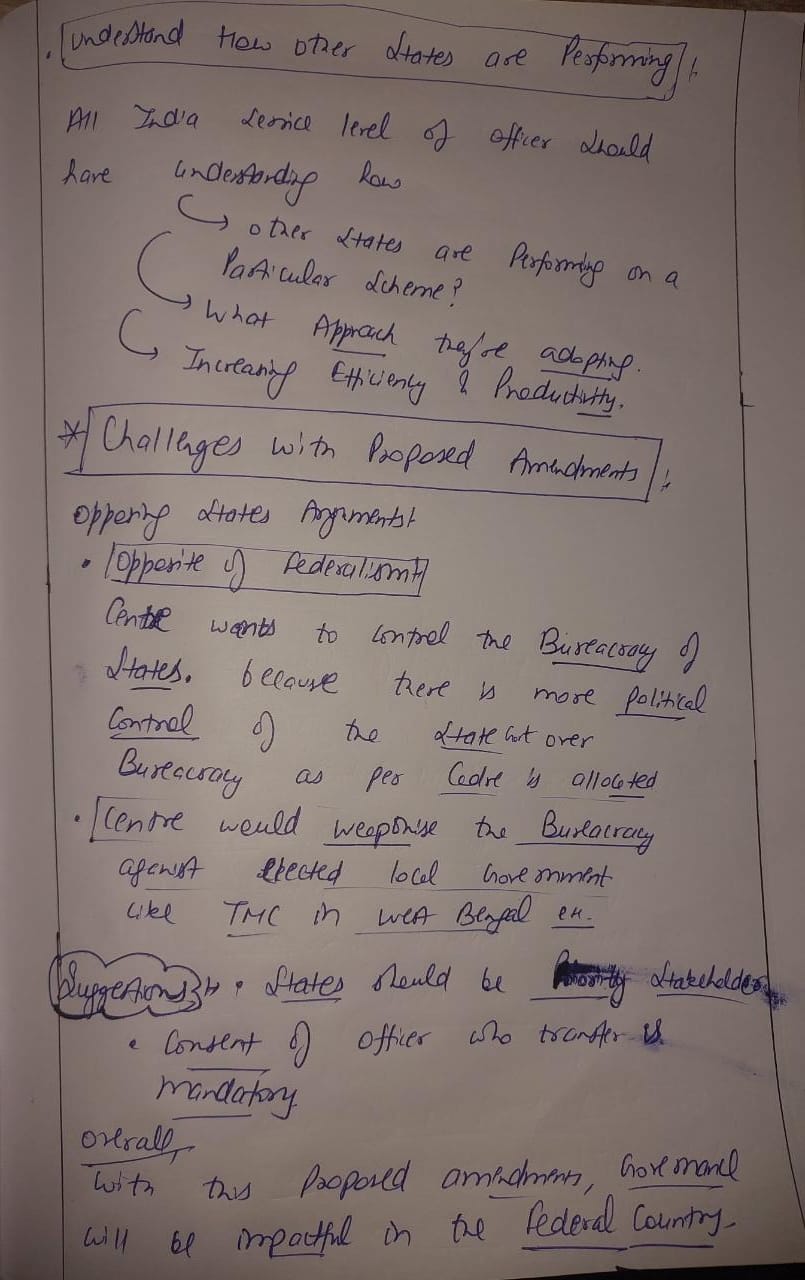 . Understand How other States are Performing :
All India Service level of officer should
have understanding how
other States are Performing on a
Particular Scheme?
What Approach they're adopting.
Increasing Efficiency & Productivity.
* Challenges with Proposed Amendments :
Opposing States Arguments:
• Opposite of federalism :
Centre wants to control the Bureacracy of
States. because there is more Political
Control of the State Govt over
Bureacracy as per Cadre is allocated
• Centre would weaponise the Bureacracy
against elected local Government
like TMC in West Bengal ex.
Suggestions :- • States should be Priority Stakeholders
• Consent of officer who transfer is
mandatory
Overall,
With this Proposed amendments, Governance
will be impactful in the Federal Country.